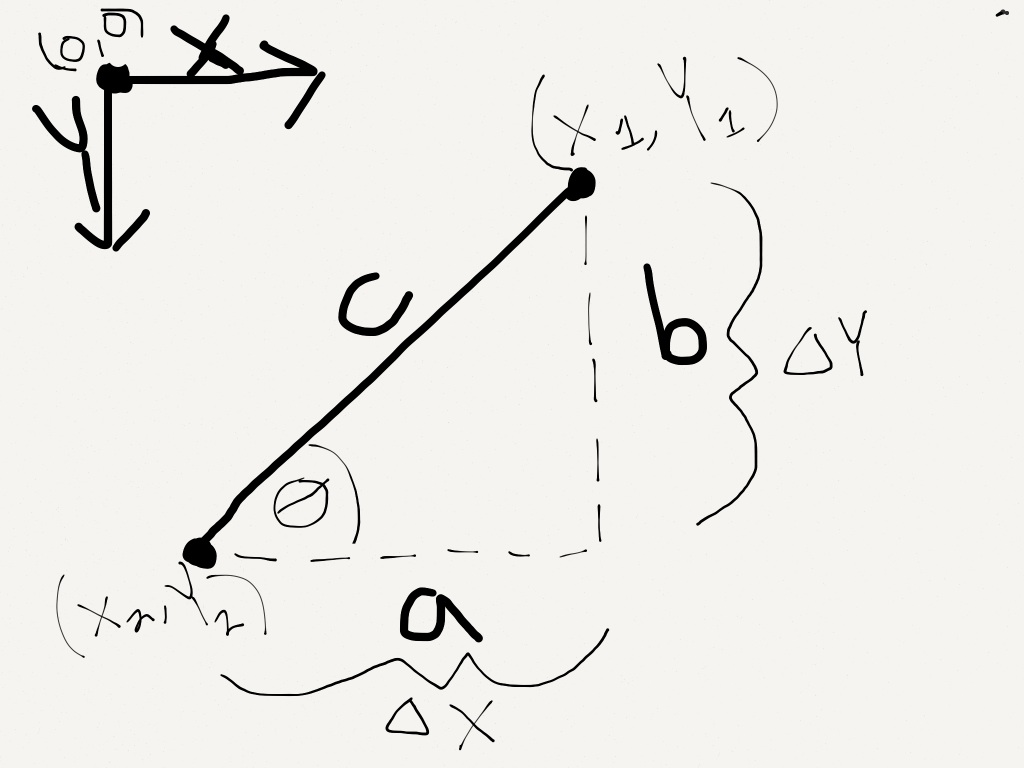 (0,0)
X
Y
(x1, Y1)
c
b
ΔY
θ
(x2, Y2)
a
ΔX